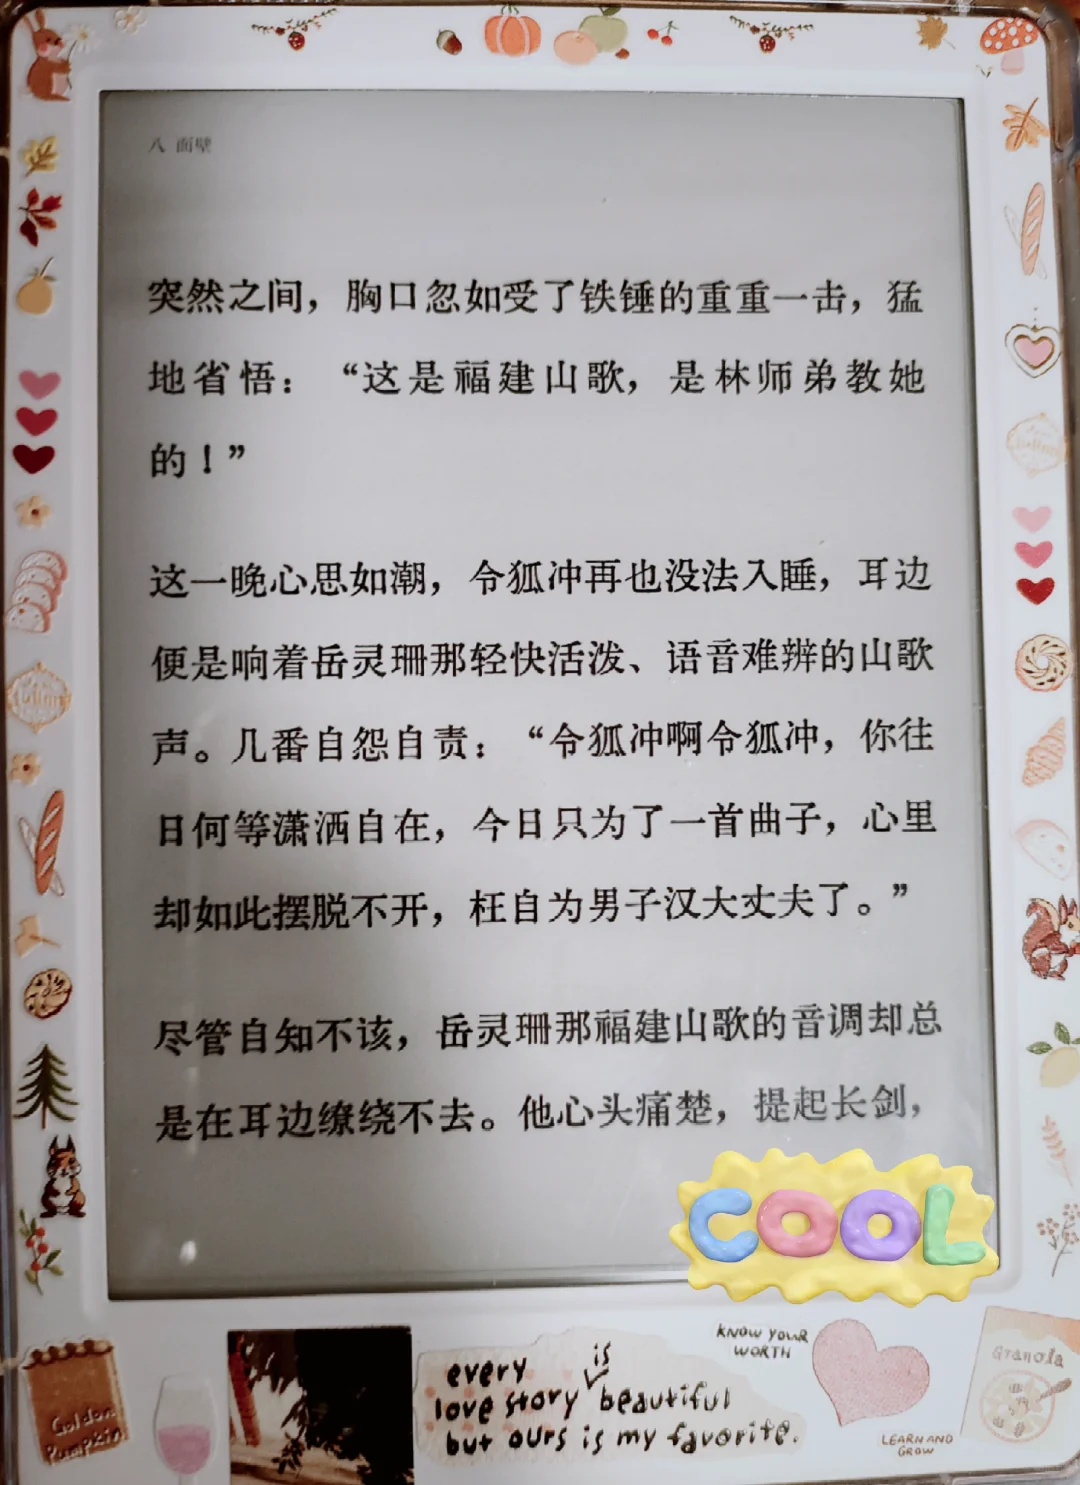 八 面壁
突然之间，胸口忽如受了铁锤的重重一击，猛
地省悟：“这是福建山歌，是林师弟教她
的！”
这一晚心思如潮，令狐冲再也没法入睡，耳边
便是响着岳灵珊那轻快活泼、语音难辨的山歌
声。几番自怨自责：“令狐冲啊令狐冲，你往
日何等潇洒自在，今日只为了一首曲子，心里
却如此摆脱不开，枉自为男子汉大丈夫了。”
尽管自知不该，岳灵珊那福建山歌的音调却总
是在耳边缭绕不去。他心头痛楚，提起长剑，
COOL
Golden
Pumpkin
every is
love story beautiful
but ours is my favorite.
KNOW YOUR
WORTH
LEARN AND
GROW
Granola